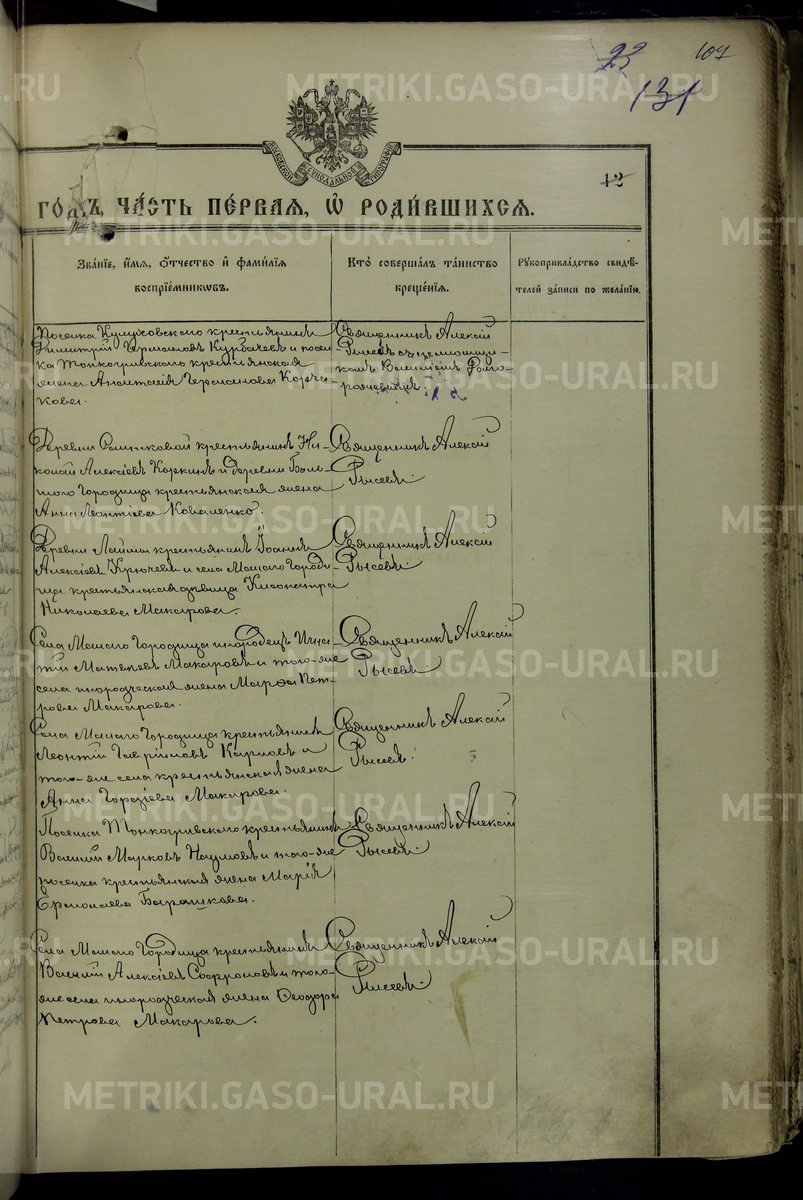 23 107
131
МОСКОВСКОЙ СИНОДАЛЬНОЙ ТИПОГРАФІИ
12
го́дъ, ча́сть пе́рваѧ, ѡ҆ роди́вшихсѧ.
Зва́нїе, и҆́мѧ, ѻ҆́тчество и҆ фами́лїѧ
воспрїе́мникѡвъ.
Кто̀ соверша́лъ та́инство
креще́нїѧ.
Рꙋкоприкла́дство свидѣ́-
телей за́писи по жела́нїю.
крестьянинъ
Димитрій Германовъ и посел-
ка Тонкогривского крестьянская
жена Германова
Священникъ Алексій
Рысевъ съ псаломщи-
комъ Василіемъ
Деревни крестьянинъ Ни-
колай Алексіевъ Коркинъ и деревни Боль-
шого Городища крестьянская жена
Анна Леонтіева Коваленко.
Священникъ Алексій
Рысевъ.
Деревни крестьянинъ Іоаннъ
Алексіевъ Крючевъ и села Малаго Городи-
ща крестьянская дѣвица Клеопатра
Николаева Макарова.
Священникъ Алексій
Рысевъ.
Села Малаго Городища инородецъ Игна-
тій Матвѣевъ Макаровъ и того-же
села инородческая жена Марѳа Пет-
рова Макарова.
Священникъ Алексій
Рысевъ.
Села Малаго Городища крестьянинъ
Леонтій Гавріиловъ Карповъ и
того-же села крестьянская жена
Анна Макарова.
Священникъ Алексій
Рысевъ.
Поселка Тонкогривского крестьянинъ
Василій Марковъ Наумовъ и того-же
поселка крестьянская жена Марія
Ермолаева Барашкова.
Священникъ Алексій
Рысевъ.
Села Малаго Городища крестьянинъ
Василій Алексіевъ Софроновъ и того-
же села инородческая жена Ѳеодора
Петрова Макарова.
Священникъ Алексій
Рысевъ.
METRIKI.GASO-URAL.RU